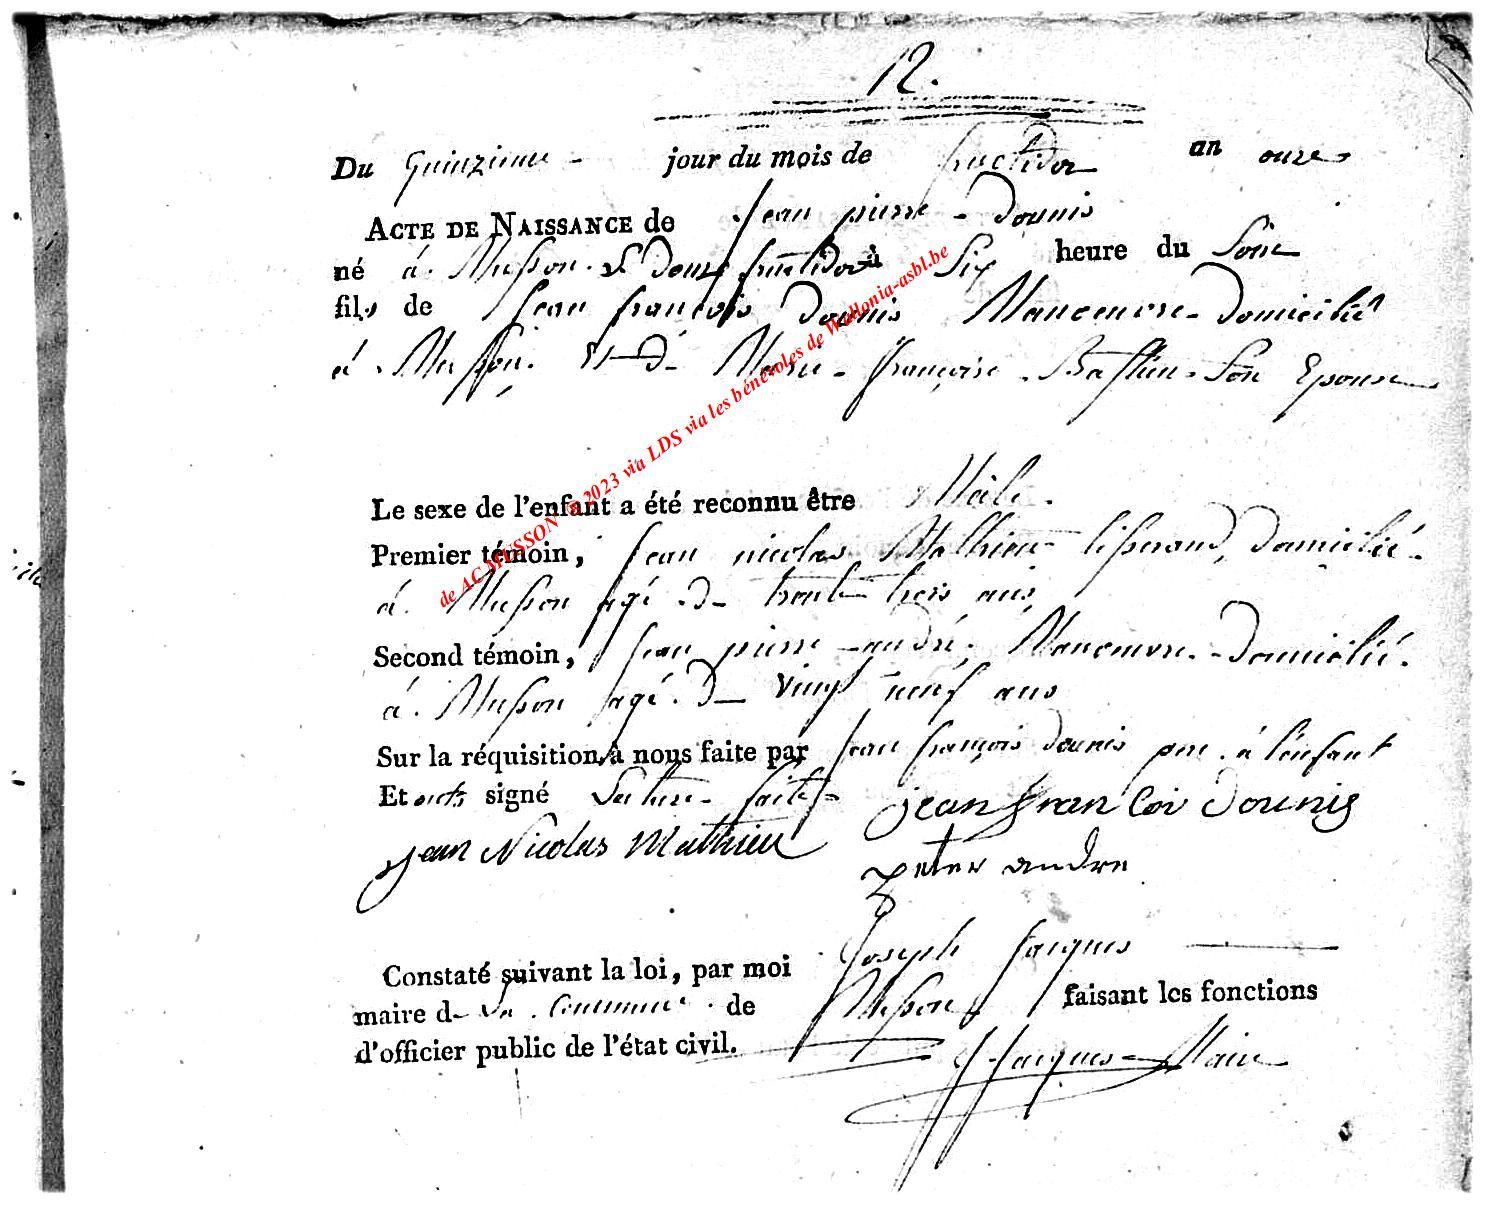 12.
Du Quinzieme jour du mois de fructidor an onze
ACTE DE NAISSANCE de Jean pierre Dounis
né á Musson le douze fructidor à Six heure du Soir
fils de Jean françois Dounis Manoeuvre Domicilié
á Musson. et de Marie françoise Bastien Son Epouse
Le sexe de l'enfant a été reconnu être Mâle.
Premier témoin, Jean nicolas Mathieu tisserand, domicilié
á Musson agé de trente trois ans
Second témoin, Jean pierre andré, Manoeuvre Domicilié
á Musson agé de vingt neuf ans
Sur la réquisition à nous faite par Jean françois dounis pere á l'enfant
Et onts signé Lecture faite
jean francoi dounis
jean Nicolas Mathieu
peter andre
Constaté suivant la loi, par moi Joseph Jacques
maire de La Commune de Musson faisant les fonctions
d'officier public de l'état civil.
J Jacques Maire
de AC MUSSON © 2023 via LDS via les bénévoles de Wallonia-asbl.be